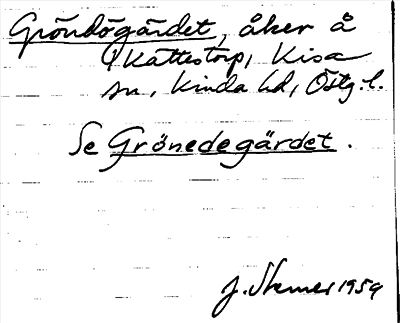 Gröndögärdet, åker å
Kättestorp, Kisa
sn, Kinda hd, Östg. l.
Se Grönedegärdet.
J. Sterner 1959